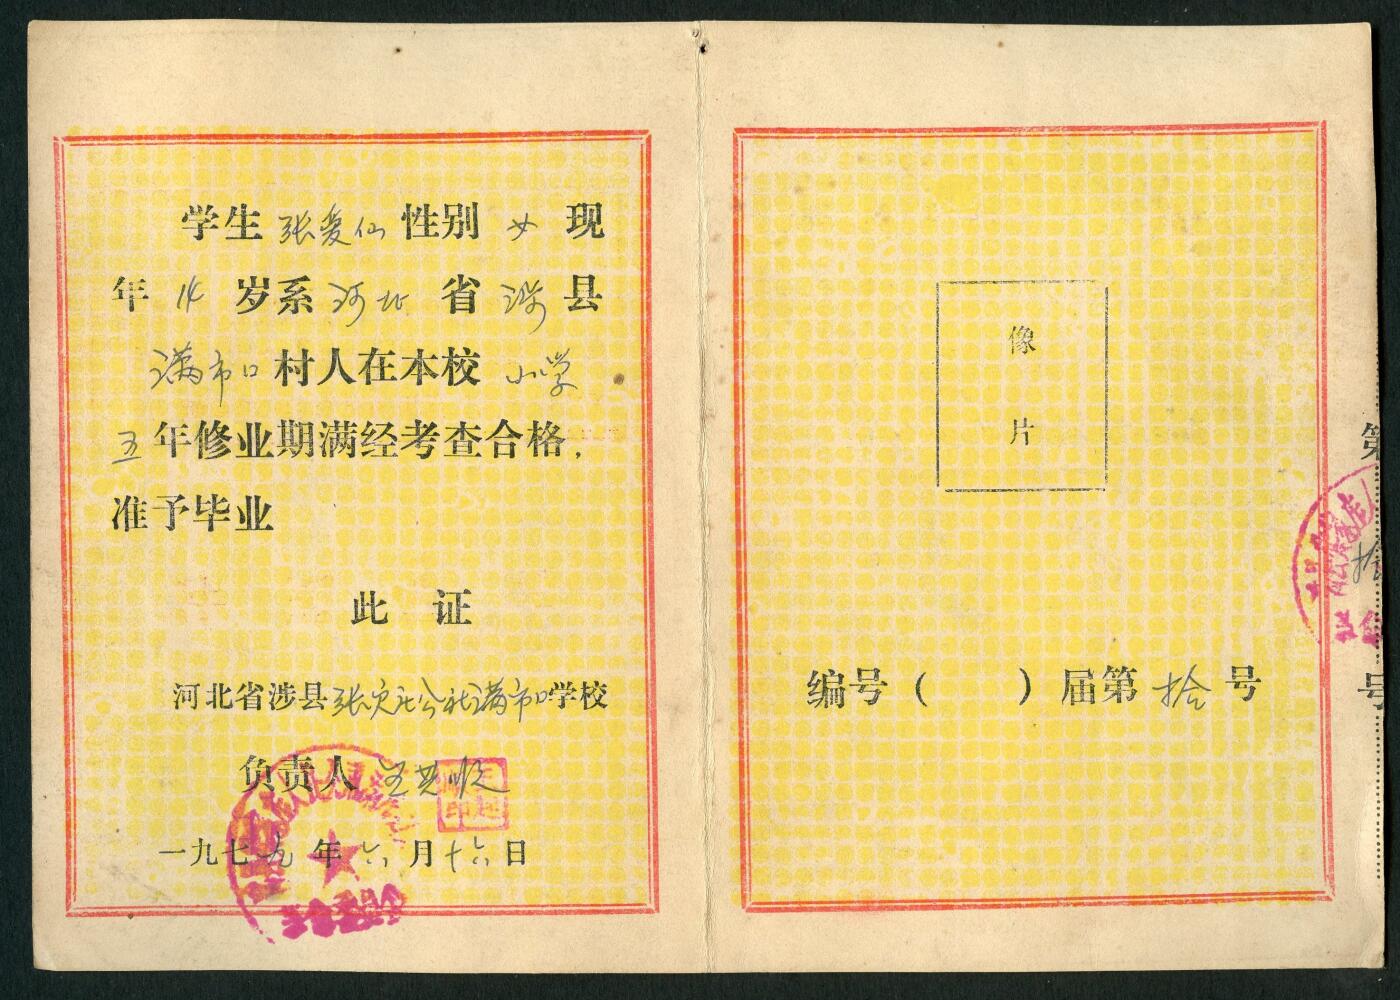 学生 张爱仙 性别 女 现
年 14 岁系 河北 省 涉 县
满市口 村人在本校 小学
五 年修业期满经考查合格，
准予毕业
此 证
河北省涉县 公社满市口学校
负责人 王 顺
一九七九 年 六 月 十六 日
像
片
编号（ ）届第 拾 号
第
拾
号